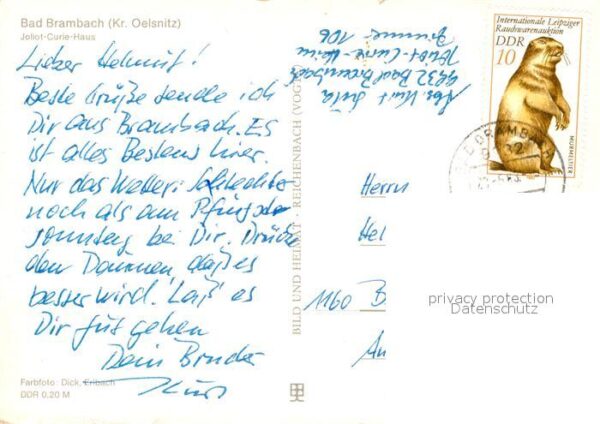 Bad Brambach (Kr. Oelsnitz)
Joliot-Curie-Haus
Lieber Helmut!
Beste Grüße sende ich
Dir aus Brambach. Es
ist alles Bestens hier.
Nur das Wetter: Schlechter
noch als am Pfingst
sonntag bei Dir. Drücke
den Daumen, daß es
besser wird. Laß' es
Dir gut gehen
Dein Bruder
Kurt
Farbfoto: Dick, Erlbach
DDR 0,20 M
BILD UND HEIMAT · REICHENBACH (VOGTL)
Abs. Kurt
9932 Bad Brambach
Joliot-Curie-Heim
Zimmer 106
Internationale Leipziger
Rauchwarenauktion
DDR
10
MURMELTIER
BRAMBA
Herrn
Hel
1160 B
An
privacy protection
Datenschutz